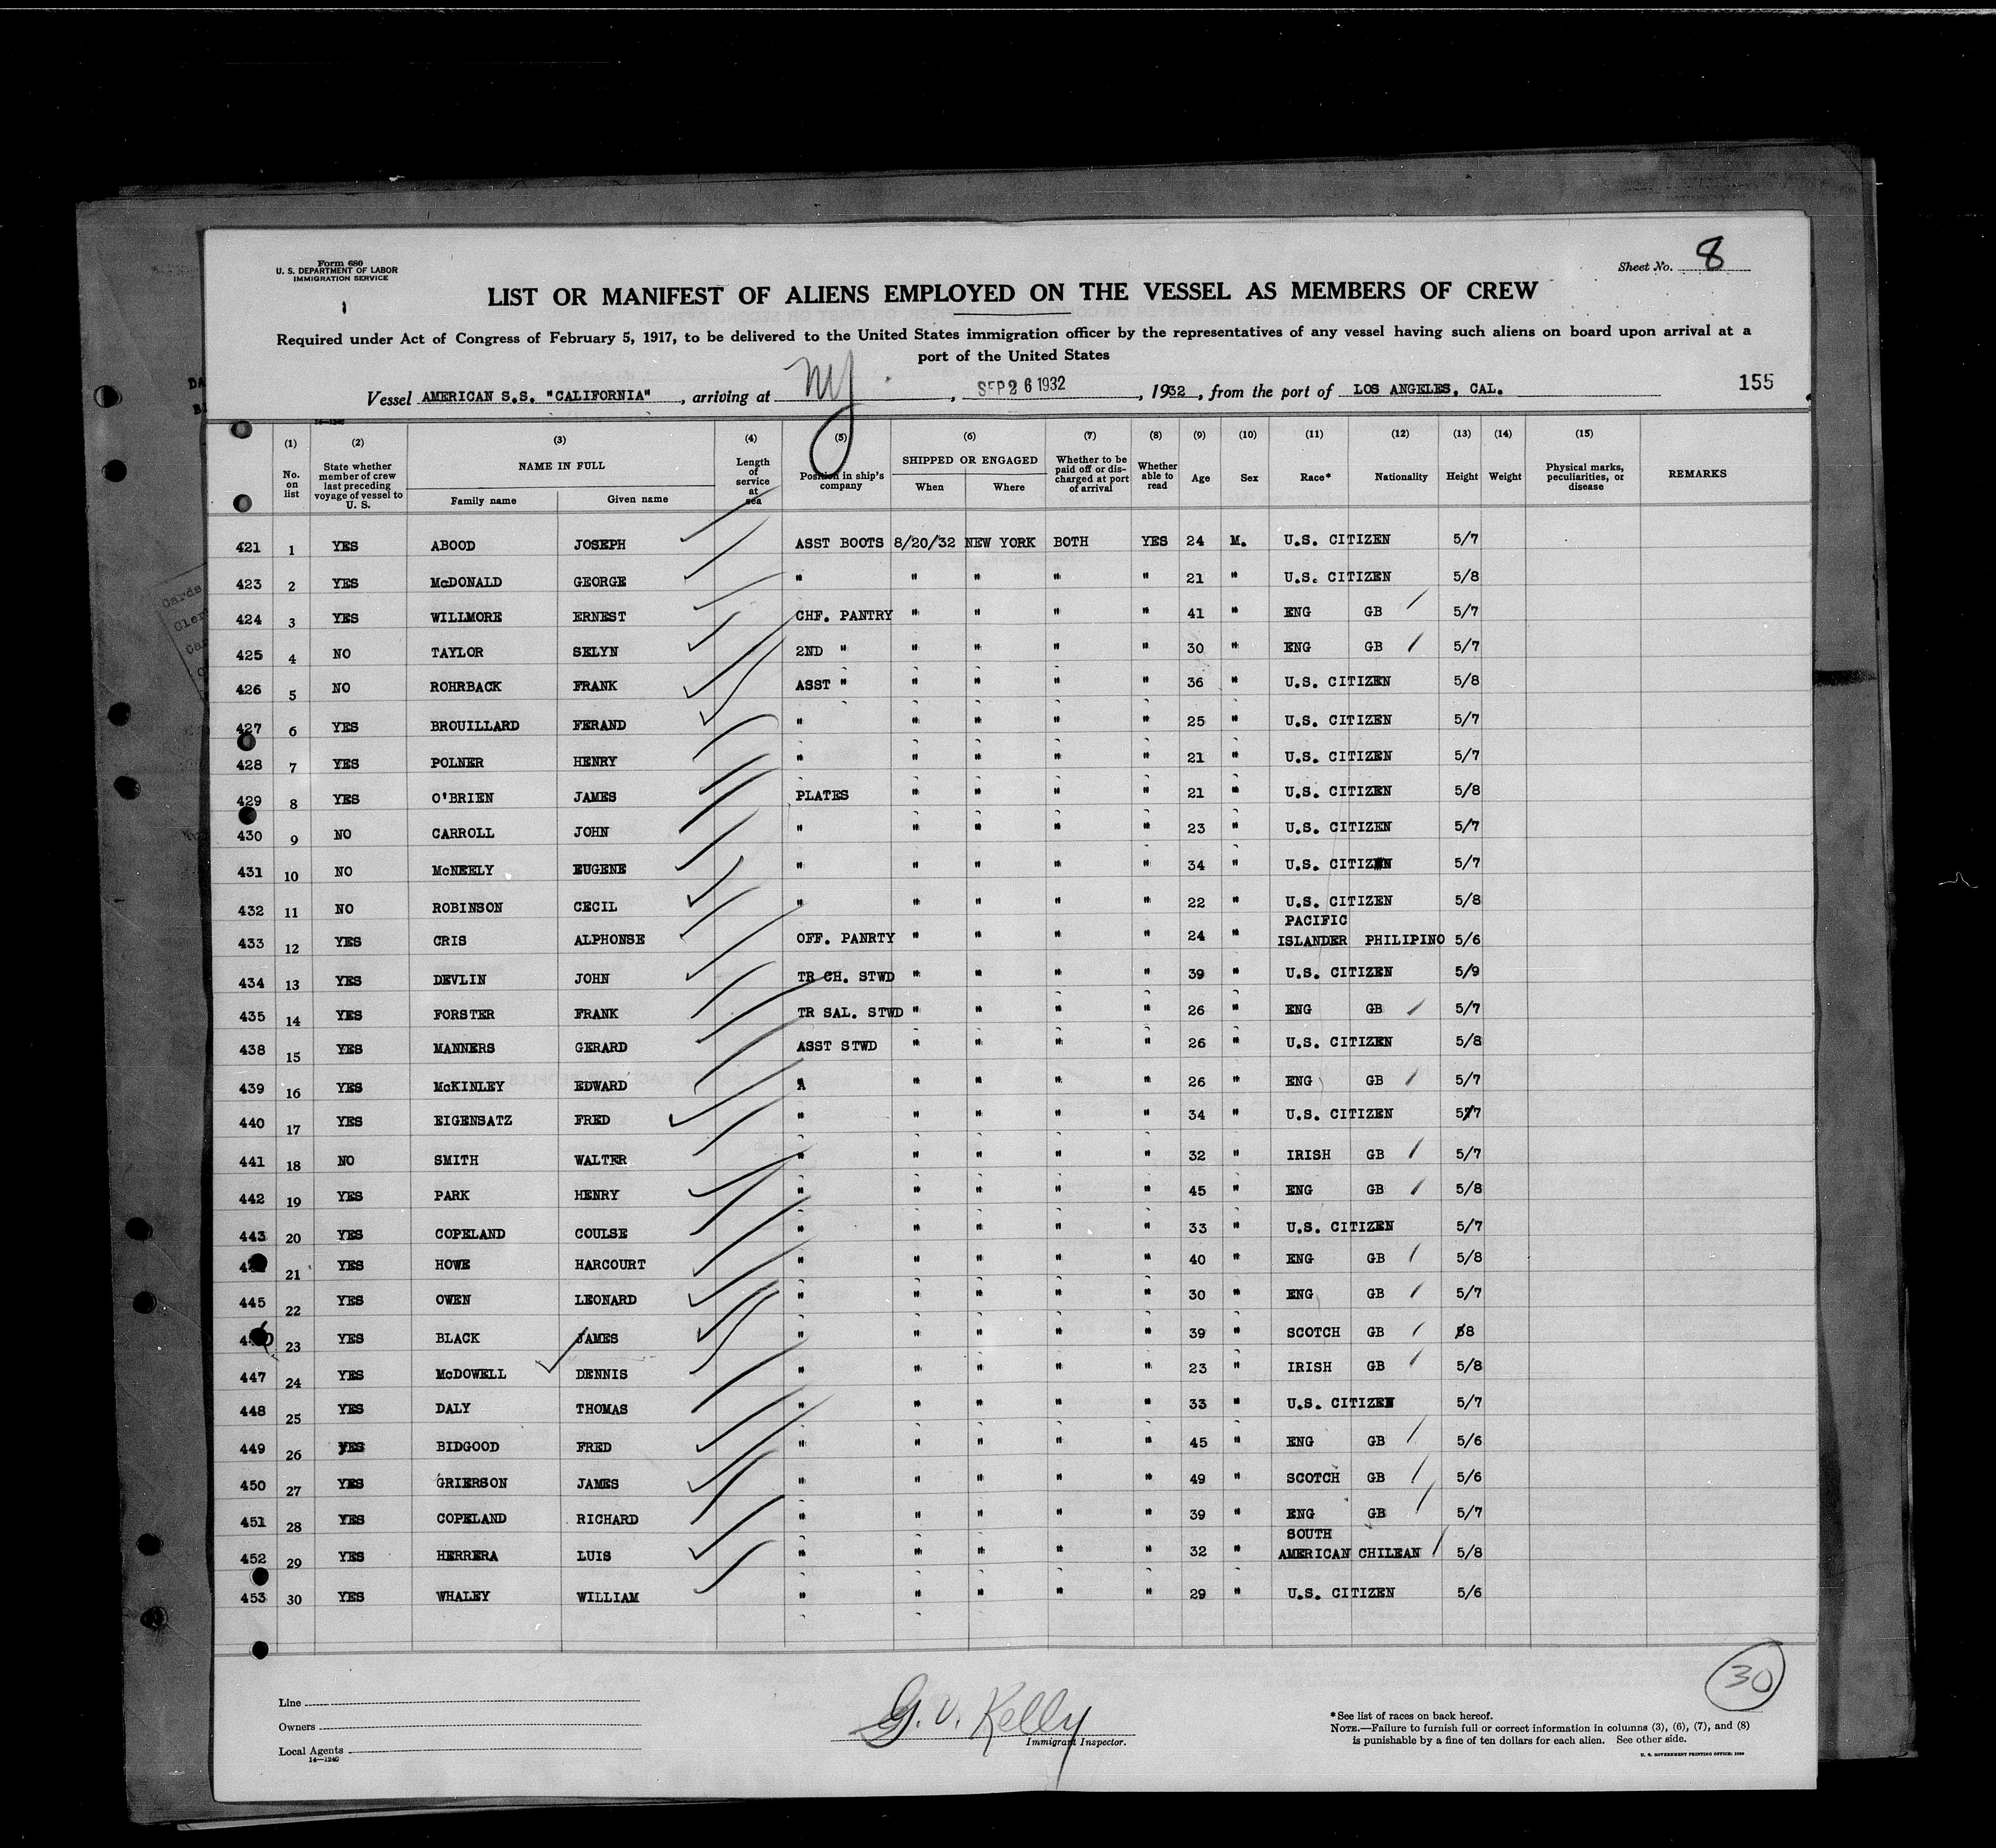 Form 680
U. S. DEPARTMENT OF LABOR
IMMIGRATION SERVICE
Sheet No. 8
LIST OR MANIFEST OF ALIENS EMPLOYED ON THE VESSEL AS MEMBERS OF CREW
Required under Act of Congress of February 5, 1917, to be delivered to the United States immigration officer by the representatives of any vessel having such aliens on board upon arrival at a
port of the United States
Vessel AMERICAN S.S. "CALIFORNIA", arriving at NY, SEP 26 1932, 1932, from the port of LOS ANGELES, CAL. 155
(1) (2) (3) (4) (5) (6) (7) (8) (9) (10) (11) (12) (13) (14) (15)
No. on list
State whether member of crew last preceding voyage of vessel to U. S.
NAME IN FULL
Family name Given name
Length of service at sea
Position in ship's company
SHIPPED OR ENGAGED
When Where
Whether to be paid off or discharged at port of arrival
Whether able to read
Age Sex Race* Nationality Height Weight
Physical marks, peculiarities, or disease
REMARKS
421 1 YES ABOOD JOSEPH ASST BOOTS 8/20/32 NEW YORK BOTH YES 24 M. U.S. CITIZEN 5/7
423 2 YES McDONALD GEORGE " " " " " 21 " U.S. CITIZEN 5/8
424 3 YES WILLMORE ERNEST CHF. PANTRY " " " " 41 " ENG GB 5/7
425 4 NO TAYLOR SELYN 2ND " " " " " 30 " ENG GB 5/7
426 5 NO ROHRBACK FRANK ASST " " " " " 36 " U.S. CITIZEN 5/8
427 6 YES BROUILLARD FERAND " " " " " 25 " U.S. CITIZEN 5/7
428 7 YES POLNER HENRY " " " " " 21 " U.S. CITIZEN 5/7
429 8 YES O'BRIEN JAMES PLATES " " " " 21 " U.S. CITIZEN 5/8
430 9 NO CARROLL JOHN " " " " " 23 " U.S. CITIZEN 5/7
431 10 NO McNEELY EUGENE " " " " " 34 " U.S. CITIZEN 5/7
432 11 NO ROBINSON CECIL " " " " " 22 " U.S. CITIZEN 5/8
433 12 YES CRIS ALPHONSE OFF. PANRTY " " " " 24 " PACIFIC ISLANDER PHILIPINO 5/6
434 13 YES DEVLIN JOHN TR CH. STWD " " " " 39 " U.S. CITIZEN 5/9
435 14 YES FORSTER FRANK TR SAL. STWD " " " " 26 " ENG GB 5/7
438 15 YES MANNERS GERARD ASST STWD " " " " 26 " U.S. CITIZEN 5/8
439 16 YES McKINLEY EDWARD " " " " 26 " ENG GB 5/7
440 17 YES EIGENSATZ FRED " " " " " 34 " U.S. CITIZEN 5/7
441 18 NO SMITH WALTER " " " " " 32 " IRISH GB 5/7
442 19 YES PARK HENRY " " " " " 45 " ENG GB 5/8
443 20 YES COPELAND COULSE " " " " " 33 " U.S. CITIZEN 5/7
21 YES HOWE HARCOURT " " " " " 40 " ENG GB 5/8
445 22 YES OWEN LEONARD " " " " " 30 " ENG GB 5/7
23 YES BLACK JAMES " " " " " 39 " SCOTCH GB 58
447 24 YES McDOWELL DENNIS " " " " " 23 " IRISH GB 5/8
448 25 YES DALY THOMAS " " " " " 33 " U.S. CITIZEN 5/7
449 26 YES BIDGOOD FRED " " " " " 45 " ENG GB 5/6
450 27 YES GRIERSON JAMES " " " " " 49 " SCOTCH GB 5/6
451 28 YES COPELAND RICHARD " " " " " 39 " ENG GB 5/7
452 29 YES HERRERA LUIS " " " " " 32 " SOUTH AMERICAN CHILEAN 5/8
453 30 YES WHALEY WILLIAM " " " " " 29 " U.S. CITIZEN 5/6
30
Line
Owners
Local Agents
14—1240
G. V. Kelly
Immigrant Inspector.
*See list of races on back hereof.
NOTE.—Failure to furnish full or correct information in columns (3), (6), (7), and (8)
is punishable by a fine of ten dollars for each alien. See other side.